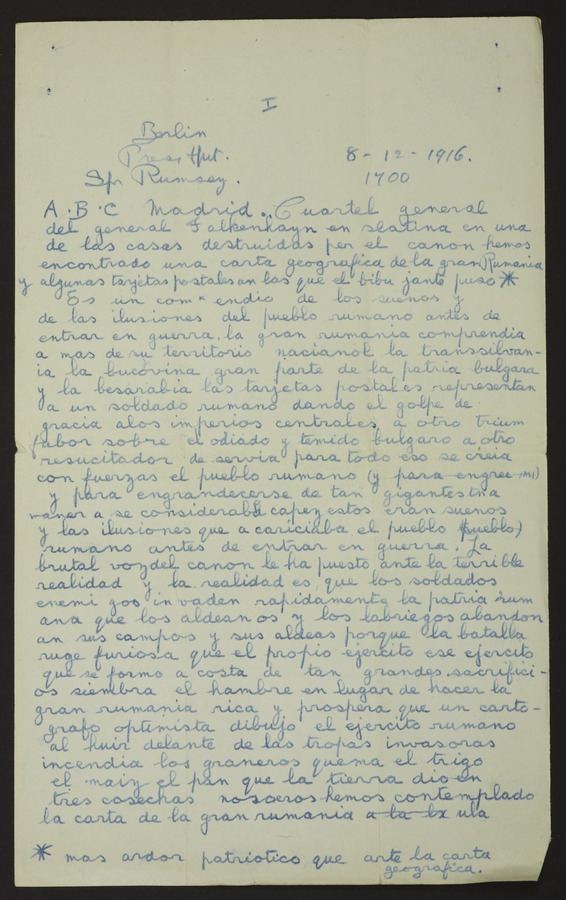 I
Berlin
Press Hut.
8-12-1916.
Spr Rumsey.
1700
A.B.C Madrid. Cuartel general
del general Falkenhayn en slatina en una
de las casas destruidas per el canon hemos
encontrado una carta geografica de la gran Rumania
y algunas tarjetas postales en las que el bibu jante puso *
Es un com endio de los suenos y
de las ilusiones del pueblo rumano antes de
entrar en guerra. la gran rumania comprendia
a mas de su territorio nacianol la transsilvan-
ia la bucovina gran parte de la patria bulgara
y la besarabia las tarjetas postales representan
a un soldado rumano dando el golpe de
gracia alos imperios centrales, a otro trium
fabor sobre el odiado y temido bulgaro a otro
resucitador de servia para todo eso se creia
con fuerzas el pueblo rumano (y para engree mi)
y para engrandecerse de tan gigantestna
maner a se considerabd capez estos eran suenos
y las ilusiones que a cariciaba el pueblo (pueblo)
rumano antes de entrar en guerra. La
brutal voz del canon le ha puesto ante la terrible
realidad y la realidad es que los soldados
enemi gos in vaden rapidamente la patria rum
ana que los aldean os y los labriegos abandon
an sus campos y sus aldeas porque la batalla
ruge furiosa que el propio ejercito ese ejercito
que se formo a costa de tan grandes sacrifici-
os siembra el hambre en lugar de hacer la
gran rumania rica y prospera que un carto-
grafo optimista dibujo el ejercito rumano
al huir delante de las tropas invasoras
incendia los graneros quema el trigo
el maiz el pan que la tierra dio en
tres cosechas nosoeros hemos contemplado
la carta de la gran rumania a la lx ula
* mas ardor patriotico que arte la carta
geografica.